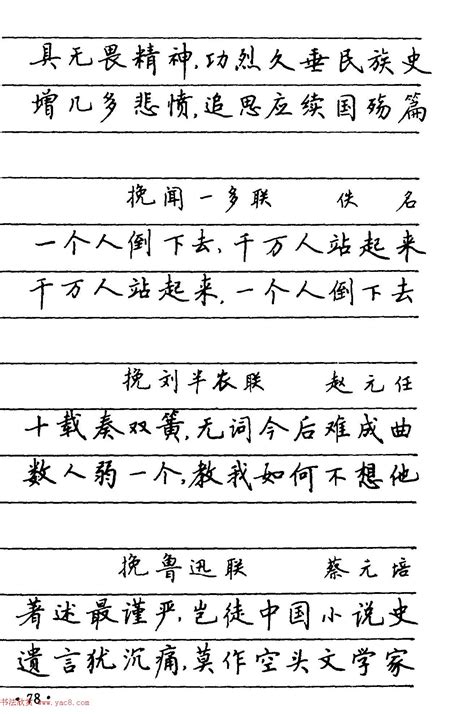 具无畏精神,功烈久垂民族史
增几多悲愤,追思应续国殇篇
挽闻一多联 佚名
一个人倒下去,千万人站起来
千万人站起来,一个人倒下去
挽刘半农联 赵元任
十载奏双簧,无词今后难成曲
数人弱一个,教我如何不想他
挽鲁迅联 蔡元培
著述最谨严,岂徒中国小说史
遗言犹沉痛,莫作空头文学家
·78·
书法欣赏 www.yac8.com